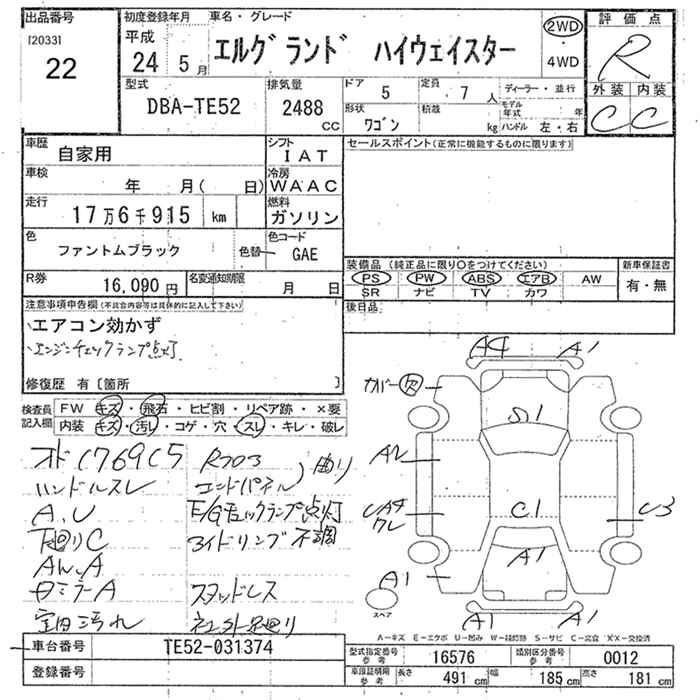 出品番号 初度登録年月 車名・グレード 評価点
[2033] 平成 2WD
22 24 5月 エルグランド ハイウェイスター 4WD R
型式 排気量 ドア 5 定員 7人 ディーラー・並行 外装 内装
DBA-TE52 2488 CC 形状 ワゴン 積載 kg モデル年式 年 C C
ハンドル 左・右
車歴 自家用 シフト IAT セールスポイント(正常に機能するものに限ります)
車検 年 月( 日) 冷房 WAAC
走行 17万6千915 km 燃料 ガソリン
色 ファントムブラック 色替 色コード GAE
装備品 (純正品に限り○をつけてください) 新車保証書
R券 16,090円 名変通知期限 月 日 PS PW ABS エアB AW 有・無
SR ナビ TV カワ
注意事項申告欄(不具合内容等は具体的に記入して下さい) 後日品
エアコン効かず
エンジンチェックランプ点灯
修復歴 有〔箇所 〕
検査員記入欄 FW キズ・飛石・ヒビ割・リペア跡・×要
内装 キズ・汚レ・コゲ・穴・スレ・キレ・破レ
A4 A1
カバー欠
S1
A2
C1
UA4 ワレ U3
A1
A1
A1 A1
スペア
ハンドルスレ エンドパネル 曲り
A,U E/Gチェックランプ点灯
下回りC アイドリング不調
ロミラーA スタッドレス
室内汚れ
A-キズ E-エクボ U-凹み W-補修跡 S-サビ C-腐食 XX-交換済
車台番号 TE52-031374 型式指定番号 参考 16576 類別区分番号 参考 0012
登録番号 車庫証明用 参考 長さ 491cm 幅 185cm 高さ 181cm